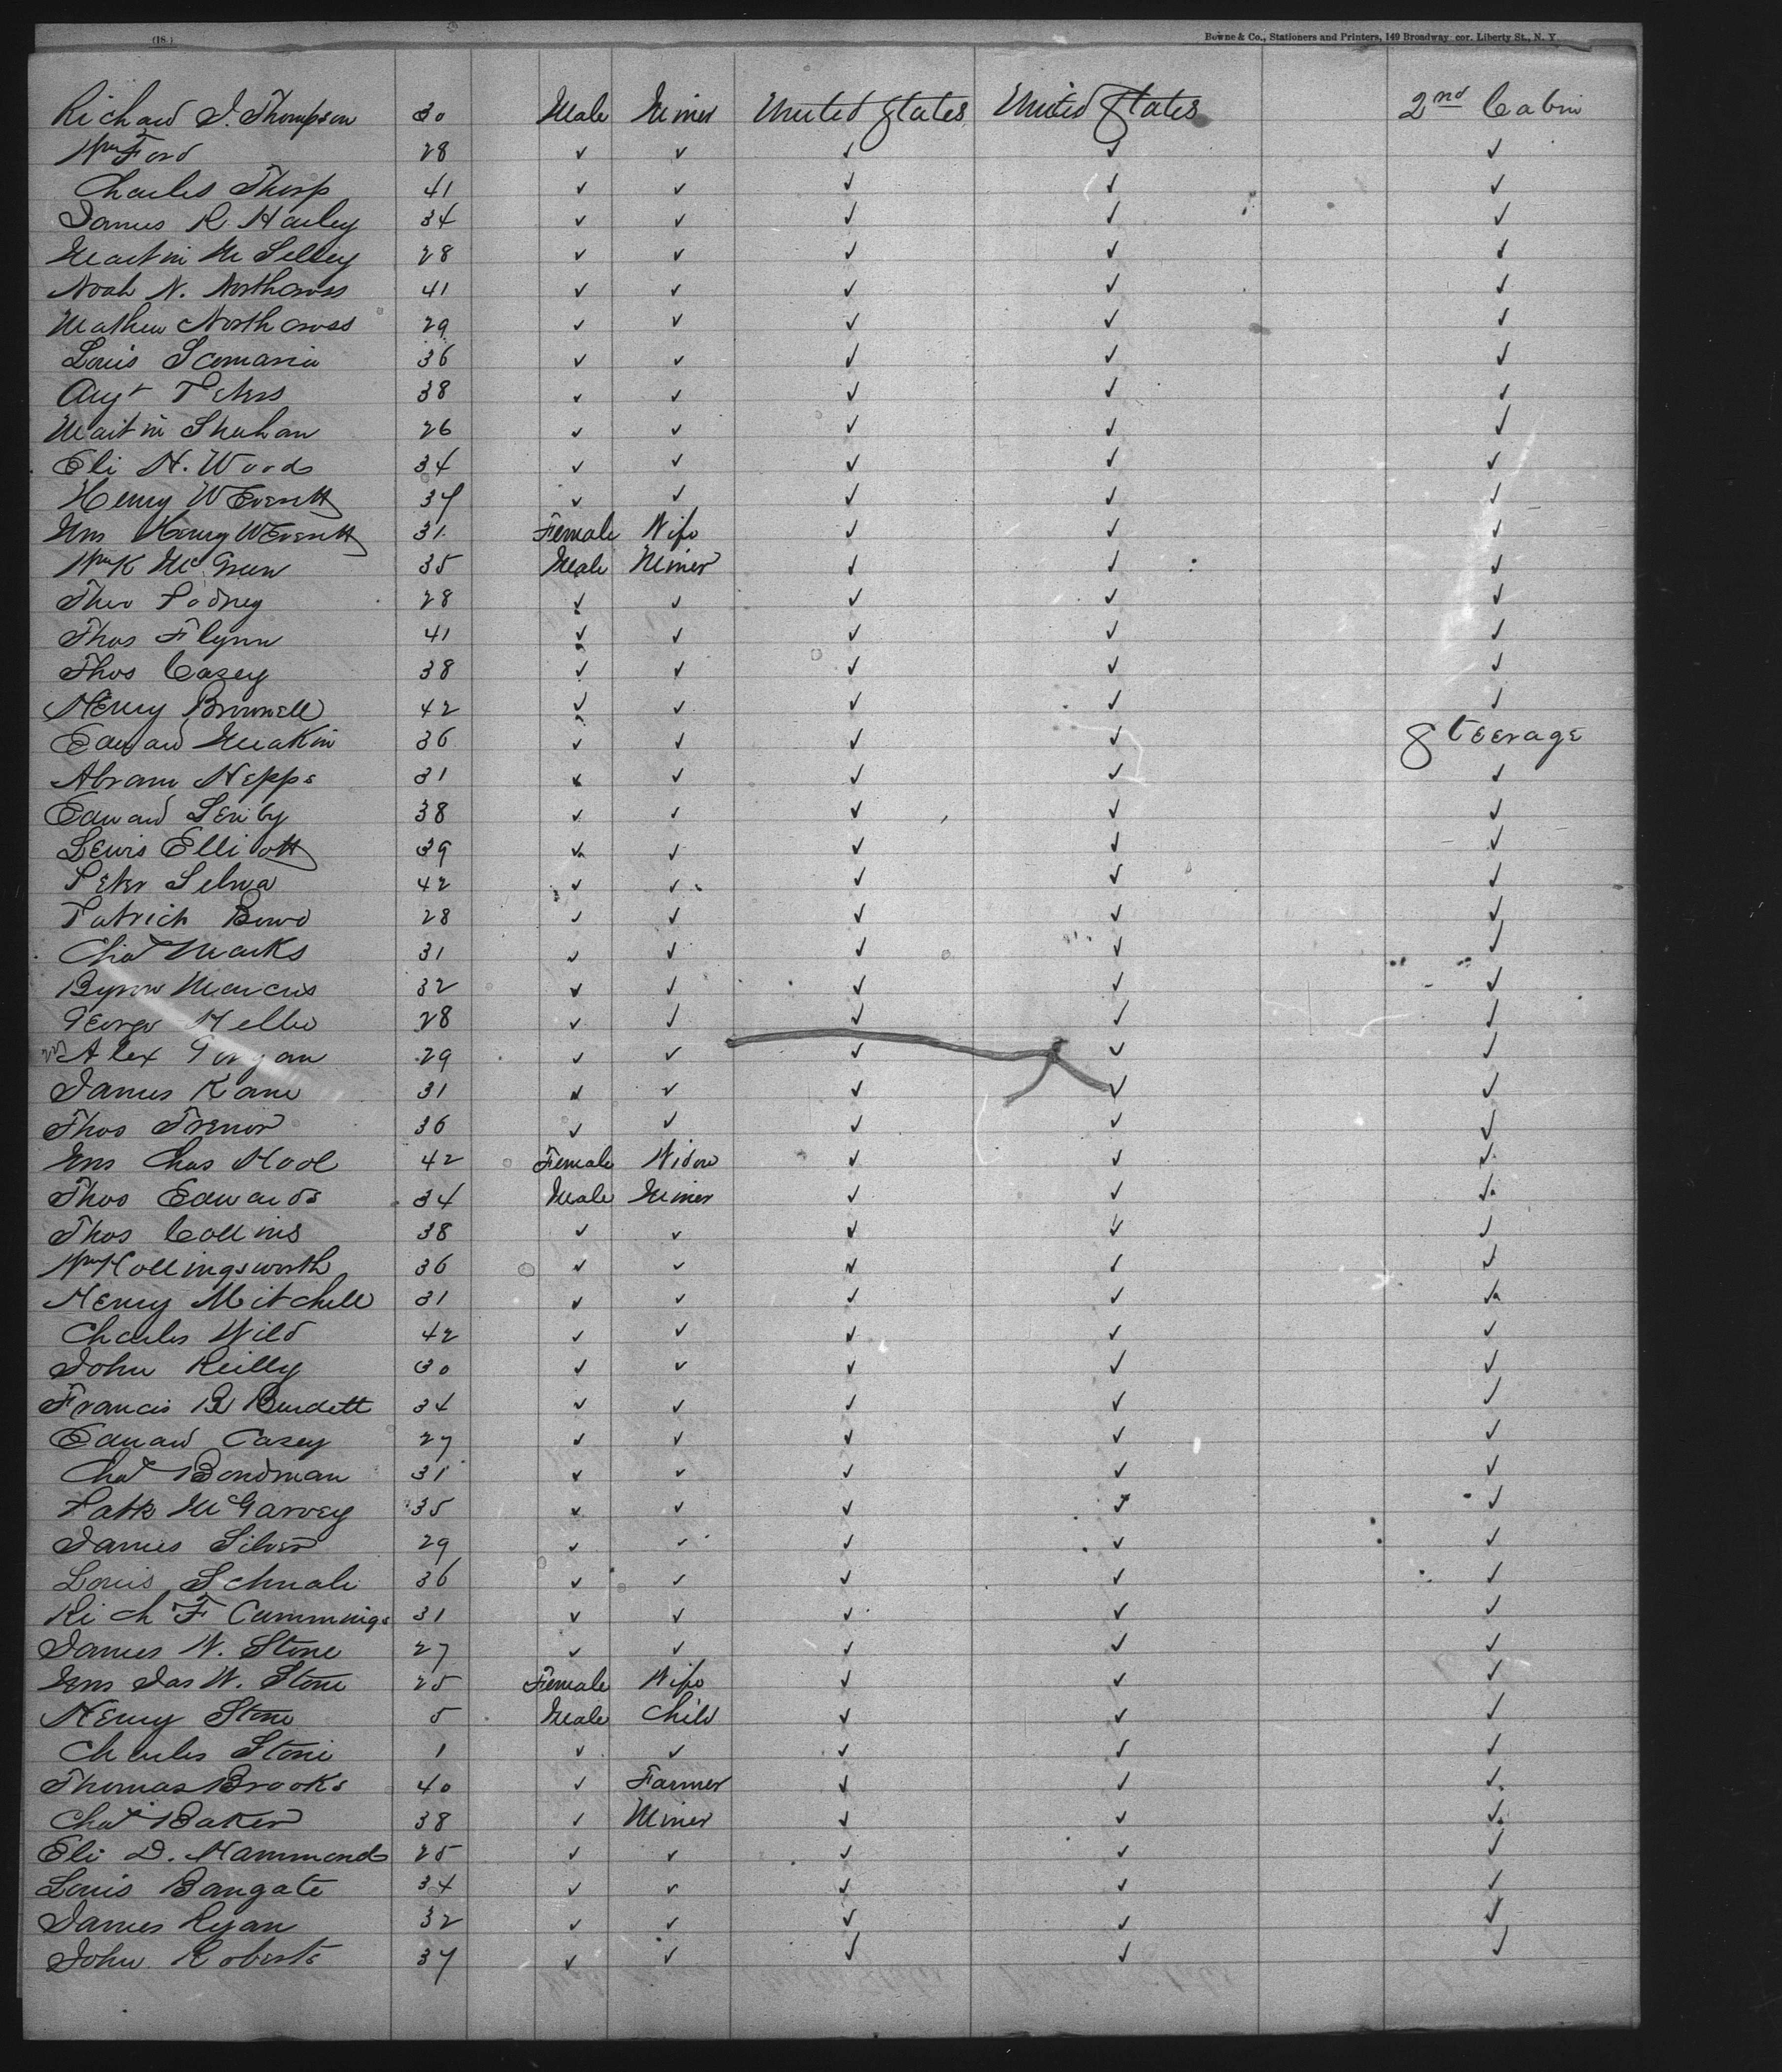 (18.)
Bowne & Co., Stationers and Printers, 149 Broadway cor. Liberty St., N. Y.
Richard J. Thompson 30 Male Miner United States United States 2nd Cabin
Wm Ford 28 ✓ ✓ ✓ ✓ ✓
Charles Thorp 41 ✓ ✓ ✓ ✓ ✓
James R. Harley 34 ✓ ✓ ✓ ✓ ✓
Martin M 28 ✓ ✓ ✓ ✓ ✓
Noah N. Northcross 41 ✓ ✓ ✓ ✓ ✓
Mathew Northcross 29 ✓ ✓ ✓ ✓ ✓
Louis 36 ✓ ✓ ✓ ✓ ✓
Augt Peters 38 ✓ ✓ ✓ ✓ ✓
Martin Shuhan 26 ✓ ✓ ✓ ✓ ✓
Eli H. Woods 34 ✓ ✓ ✓ ✓ ✓
Henry W Everett 37 ✓ ✓ ✓ ✓ ✓
Mrs Henry W Everett 31 Female Wife ✓ ✓ ✓
Wm K McGrew 35 Male Miner ✓ ✓ ✓
Theo Podney 28 ✓ ✓ ✓ ✓ ✓
Thos Flynn 41 ✓ ✓ ✓ ✓ ✓
Thos Casey 38 ✓ ✓ ✓ ✓ ✓
Henry Brownell 42 ✓ ✓ ✓ ✓ ✓
Edward Meakin 36 ✓ ✓ ✓ ✓ Steerage
Abram Hepps 31 ✓ ✓ ✓ ✓ ✓
Edward 38 ✓ ✓ ✓ ✓ ✓
Lewis Elliott 39 ✓ ✓ ✓ ✓ ✓
Peter Selma 42 ✓ ✓ ✓ ✓ ✓
Patrick 28 ✓ ✓ ✓ ✓ ✓
Chas Marks 31 ✓ ✓ ✓ ✓ ✓
Byron Marcus 32 ✓ ✓ ✓ ✓ ✓
George 28 ✓ ✓ ✓ ✓ ✓
Alex 29 ✓ ✓ ✓ ✓ ✓
James Kane 31 ✓ ✓ ✓ ✓ ✓
Thos Trenor 36 ✓ ✓ ✓ ✓ ✓
Mrs Chas Hool 42 Female Widow ✓ ✓ ✓
Thos Edwards 34 Male Miner ✓ ✓ ✓
Thos Collins 38 ✓ ✓ ✓ ✓ ✓
Wm Hollingsworth 36 ✓ ✓ ✓ ✓ ✓
Henry Mitchell 31 ✓ ✓ ✓ ✓ ✓
Charles Wild 42 ✓ ✓ ✓ ✓ ✓
John Reilly 30 ✓ ✓ ✓ ✓ ✓
Francis B Burdett 34 ✓ ✓ ✓ ✓ ✓
Edward Casey 27 ✓ ✓ ✓ ✓ ✓
Chas Bondman 31 ✓ ✓ ✓ ✓ ✓
Patk McGarvey 35 ✓ ✓ ✓ ✓ ✓
James Silver 29 ✓ ✓ ✓ ✓ ✓
Louis Schnali 36 ✓ ✓ ✓ ✓ ✓
Rich F Cummings 31 ✓ ✓ ✓ ✓ ✓
James W. Stone 27 ✓ ✓ ✓ ✓ ✓
Mrs Jas W. Stone 25 Female Wife ✓ ✓ ✓
Henry Stone 5 Male Child ✓ ✓ ✓
Charles Stone 1 ✓ ✓ ✓ ✓ ✓
Thomas Brooks 40 ✓ Farmer ✓ ✓ ✓
Chas Baker 38 ✓ Miner ✓ ✓ ✓
Eli D. Hammond 25 ✓ ✓ ✓ ✓ ✓
Louis Bangate 34 ✓ ✓ ✓ ✓ ✓
James Ryan 32 ✓ ✓ ✓ ✓ ✓
John Roberts 37 ✓ ✓ ✓ ✓ ✓